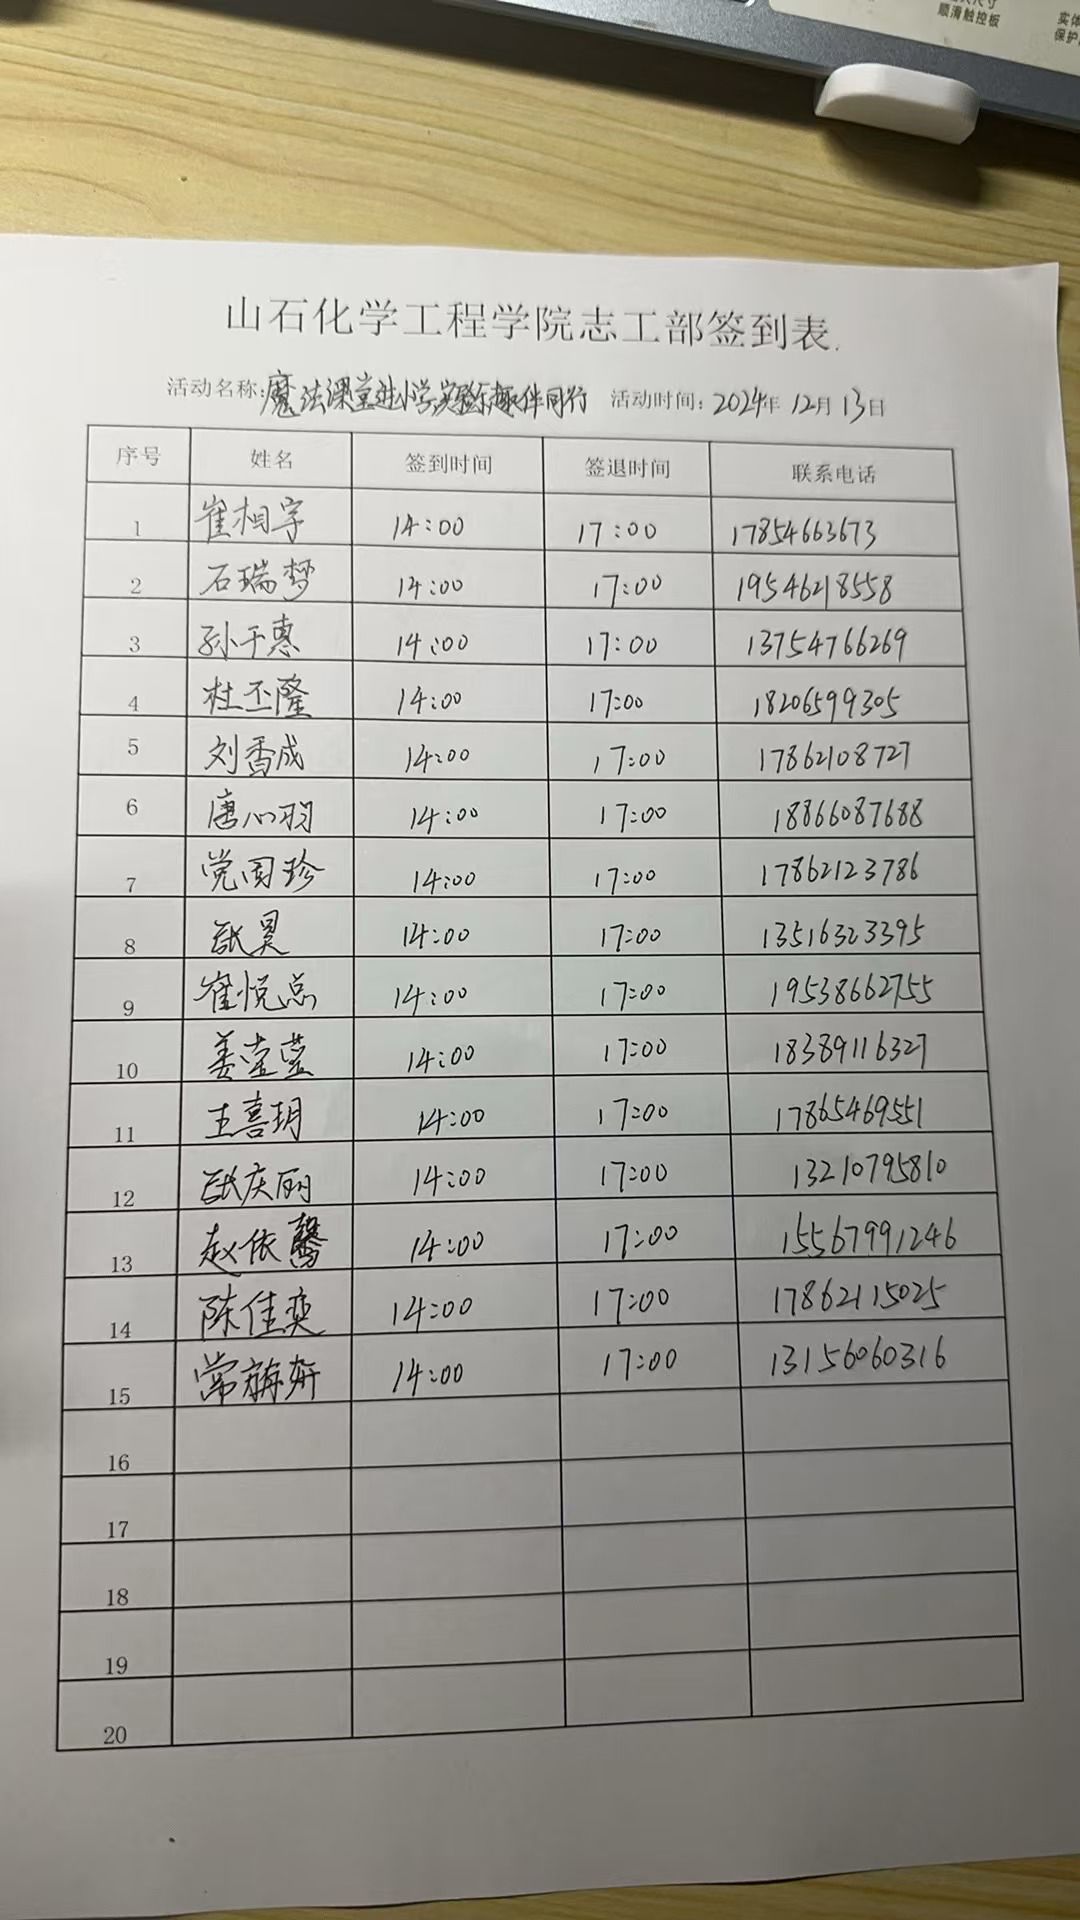 顺滑触控板
实体
保护
山石化学工程学院志工部签到表.
活动名称:魔法课堂进小学实验乐趣伴同行 活动时间: 2024年 12月 13日
序号 姓名 签到时间 签退时间 联系电话
1 崔相宇 14:00 17:00 17854663673
2 石瑞梦 14:00 17:00 19546218558
3 孙于惠 14:00 17:00 13754766269
4 杜丕隆 14:00 17:00 18206599305
5 刘香成 14:00 17:00 17862108727
6 唐心羽 14:00 17:00 18866087688
7 党国珍 14:00 17:00 17862123786
8 张昊 14:00 17:00 13516323395
9 崔悦 14:00 17:00 19538662755
10 姜莹莹 14:00 17:00 18389116327
11 王喜玥 14:00 17:00 17865469551
12 张庆丽 14:00 17:00 13210795810
13 赵依馨 14:00 17:00 15567991246
14 陈佳奕 14:00 17:00 17862115025
15 常妍 14:00 17:00 13156060316
16
17
18
19
20